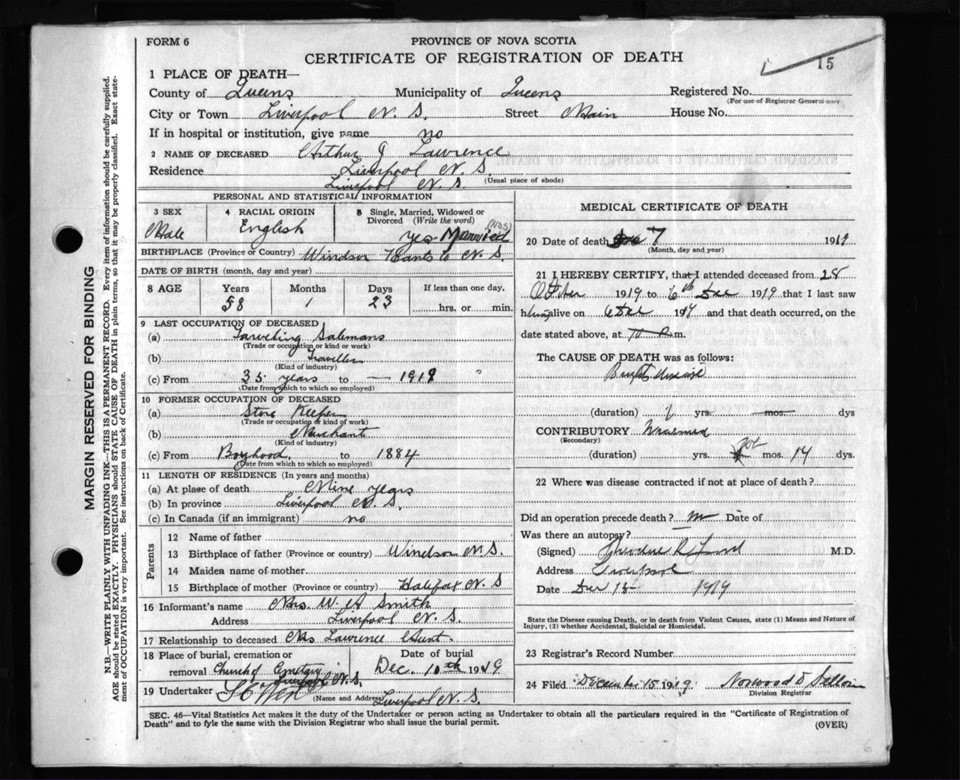 FORM 6
PROVINCE OF NOVA SCOTIA
15
CERTIFICATE OF REGISTRATION OF DEATH
1 PLACE OF DEATH—
County of Queens Municipality of Queens Registered No.
(For use of Registrar General only)
City or Town Liverpool N. S. Street Main House No.
If in hospital or institution, give name no
2 NAME OF DECEASED Arthur J Lawrence
Residence Liverpool N. S.
(Usual place of abode)
Liverpool N. S.
PERSONAL AND STATISTICAL INFORMATION
3 SEX Male
4 RACIAL ORIGIN English
5 Single, Married, Widowed or Divorced (Write the word) yes Married
BIRTHPLACE (Province or Country) Windsor Hants Co N. S.
DATE OF BIRTH (month, day and year)
8 AGE Years Months Days If less than one day,
58 1 23 hrs. or min.
9 LAST OCCUPATION OF DECEASED
(a) Traveling Salesmans
(Trade or occupation or kind or work)
(b) Traveller
(Kind of industry)
(c) From 35 years to — 1918 "
(Date from which to which so employed)
10 FORMER OCCUPATION OF DECEASED
(a) Store Keeper
(Trade or occupation or kind of work)
(b) Merchant
(Kind of industry)
(c) From Boyhood to 1884
(Date from which to which so employed)
11 LENGTH OF RESIDENCE (In years and months)
(a) At place of death Nine years
(b) In province Liverpool N. S.
(c) In Canada (if an immigrant) no
Parents
12 Name of father
13 Birthplace of father (Province or country) Windsor N. S.
14 Maiden name of mother
15 Birthplace of mother (Province or country) Halifax N. S
16 Informant's name Mrs. W. H Smith
Address Liverpool N. S.
17 Relationship to deceased Mrs Lawrence Aunt
18 Place of burial, cremation or removal Church of Cemetery Liverpool N. S.
Date of burial Dec. 10th 1919
19 Undertaker
(Name and Address) Liverpool N. S.
MEDICAL CERTIFICATE OF DEATH
20 Date of death 7 1919
(Month, day and year)
21 I HEREBY CERTIFY, that I attended deceased from 28
October 1919 to 6th Dec 1919 that I last saw
him alive on 6 Dec 1919 and that death occurred, on the
date stated above, at m.
The CAUSE OF DEATH was as follows:
Brights disease
(duration) yrs. mos. dys
CONTRIBUTORY
(Secondary)
(duration) yrs. mos. 14 dys.
22 Where was disease contracted if not at place of death?
Did an operation precede death? no Date of
Was there an autopsy?
(Signed) M.D.
Address Liverpool
Date Dec 15 1919
State the Disease causing Death, or in death from Violent Causes, state (1) Means and Nature of Injury, (2) whether Accidental, Suicidal or Homicidal.
23 Registrar's Record Number
24 Filed December 15 1919 Norwood D
Division Registrar
SEC. 46—Vital Statistics Act makes it the duty of the Undertaker or person acting as Undertaker to obtain all the particulars required in the "Certificate of Registration of
Death" and to fyle the same with the Division Registrar who shall issue the burial permit.
(OVER)
MARGIN RESERVED FOR BINDING
N.B.—WRITE PLAINLY WITH UNFADING INK—THIS IS A PERMANENT RECORD. Every item of information should be carefully supplied.
AGE should be stated EXACTLY. PHYSICIANS should STATE CAUSE OF DEATH in plain terms, so that it may be properly classified. Exact state-
ment of OCCUPATION is very important. See instructions on back of Certificate.